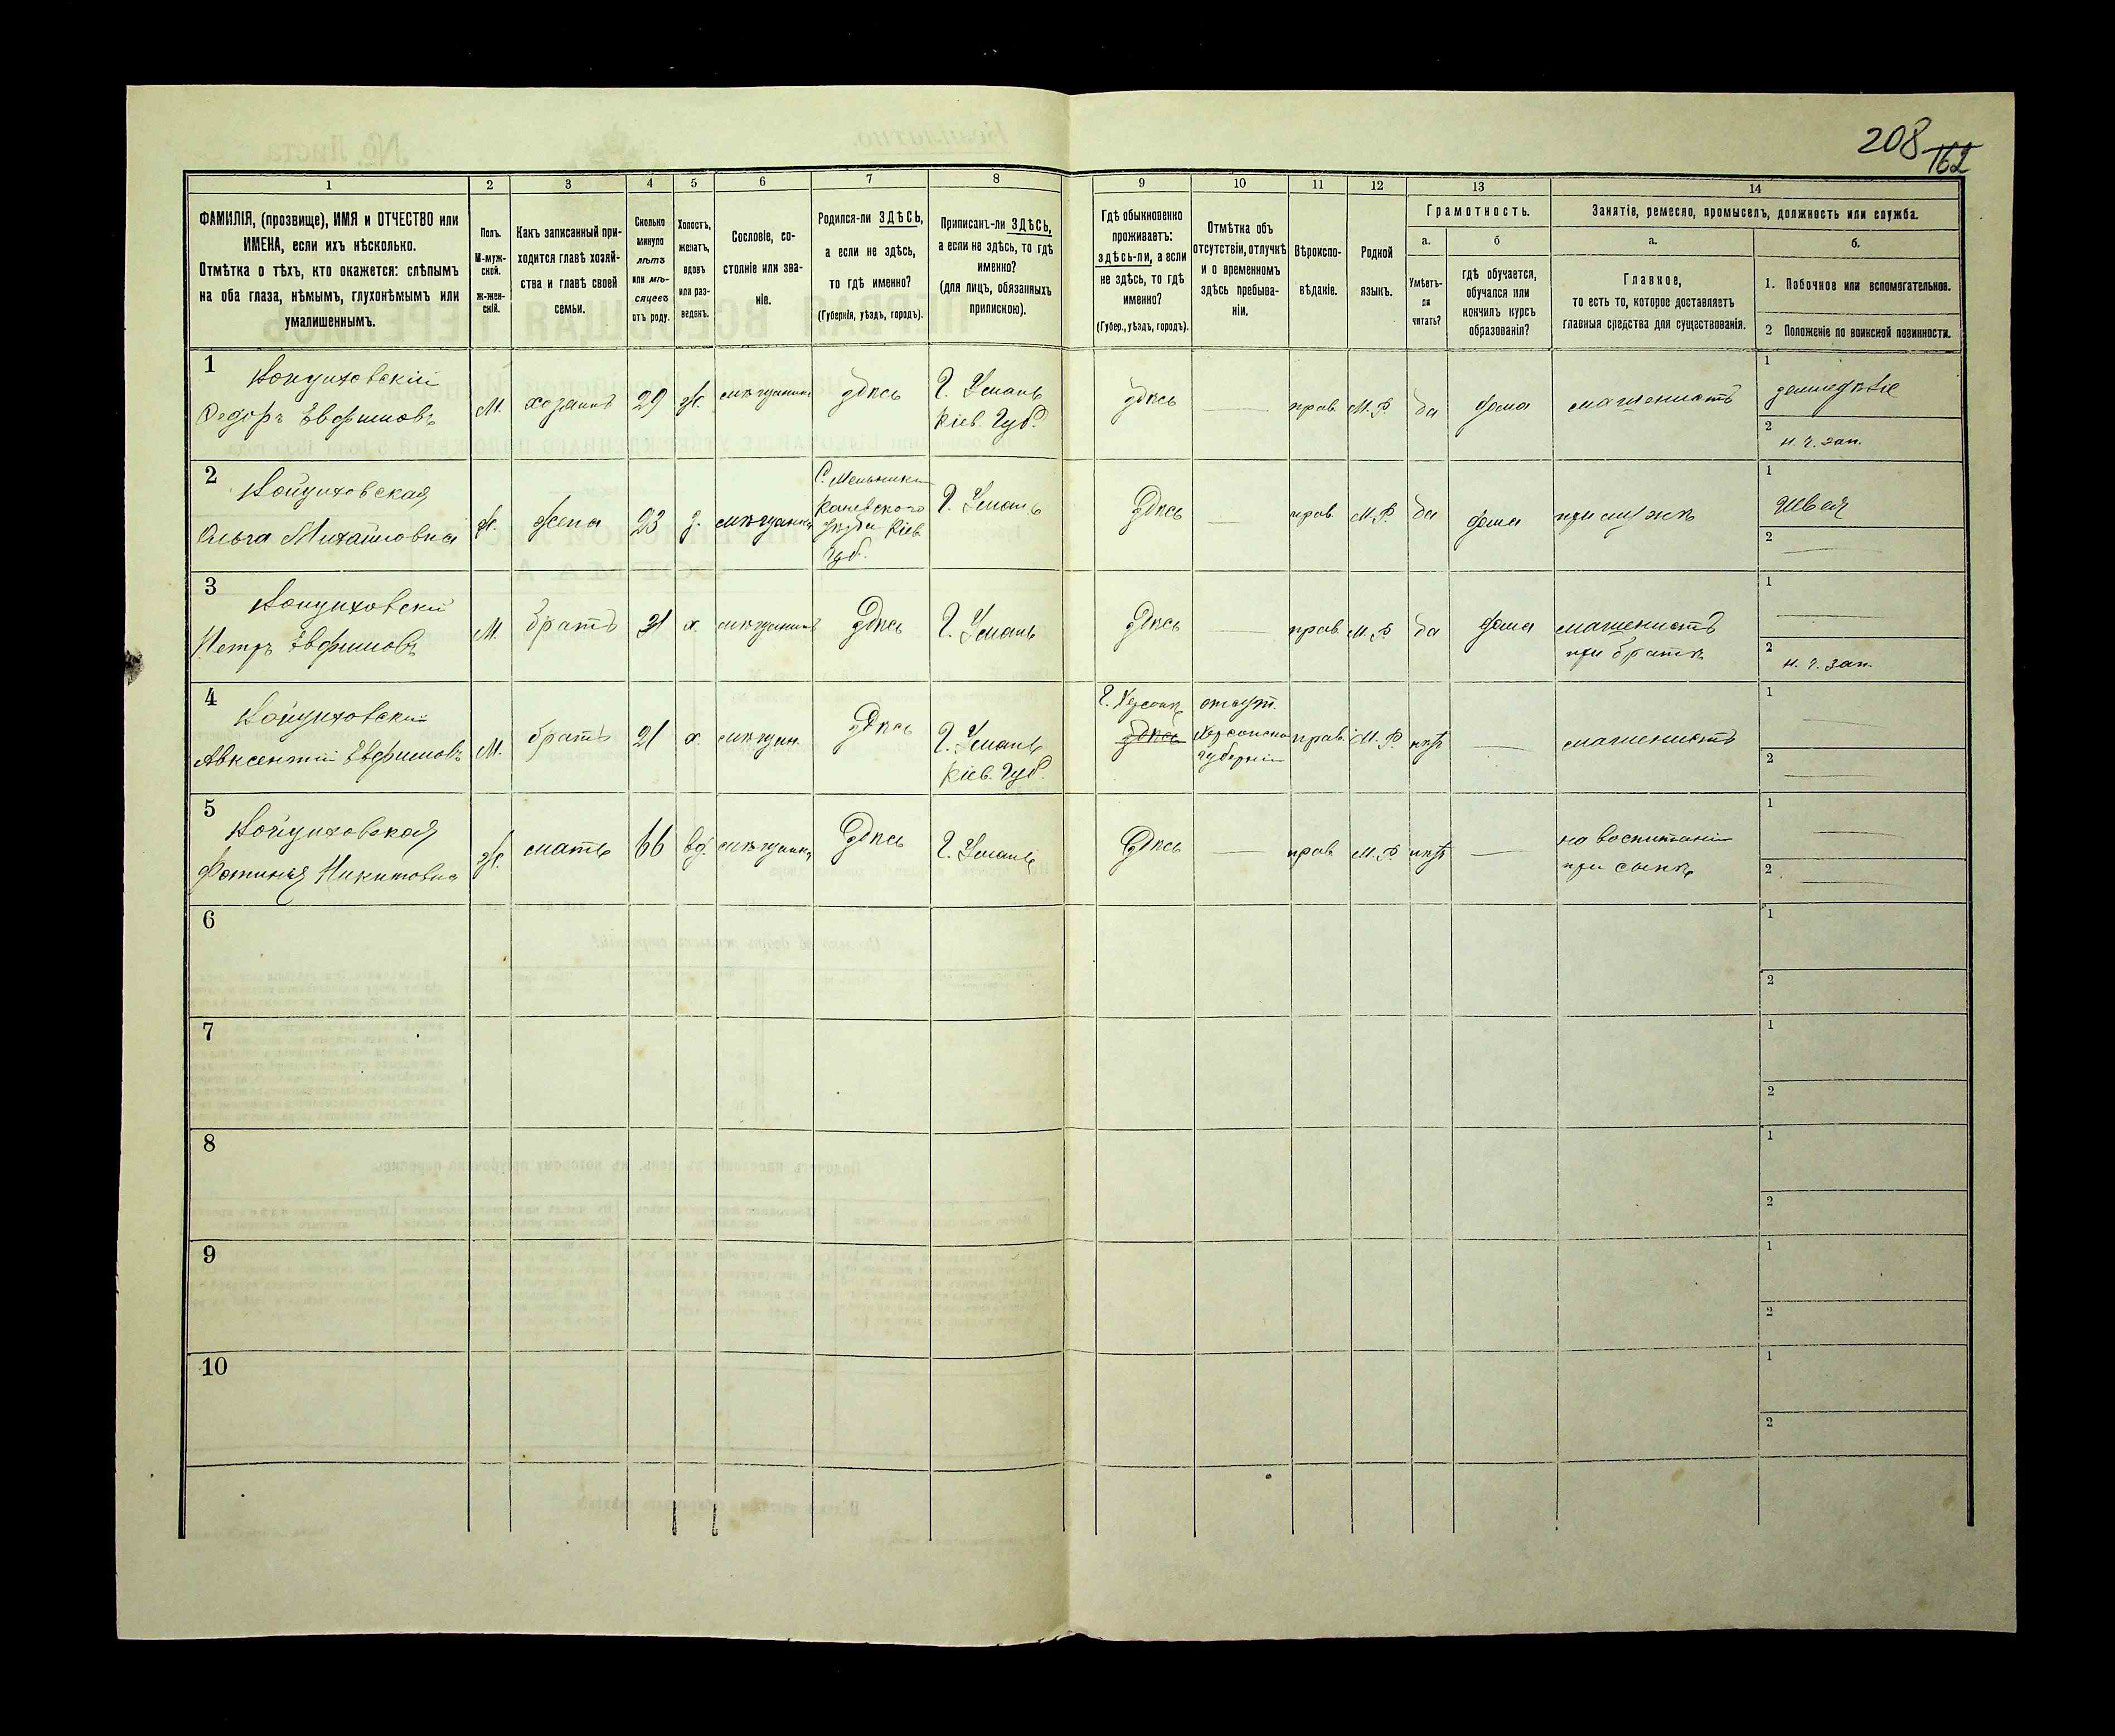 208
162
1 2 3 4 5 6 7 8 9 10 11 12 13 14
ФАМИЛІЯ, (прозвище), ИМЯ и ОТЧЕСТВО или
ИМЕНА, если ихъ нѣсколько.
Отмѣтка о тѣхъ, кто окажется: слѣпымъ
на оба глаза, нѣмымъ, глухонѣмымъ или
умалишеннымъ.
Полъ.
М-муж-
ской.
ж-жен-
скій.
Какъ записанный при-
ходится главѣ хозяй-
ства и главѣ своей
семьи.
Сколько
минуло
лѣтъ
или мѣ-
сяцевъ
отъ роду.
Холостъ,
женатъ,
вдовъ
или раз-
веденъ.
Сословіе, со-
стояніе или зва-
ніе.
Родился-ли ЗДѢСЬ,
а если не здѣсь,
то гдѣ именно?
(Губернія, уѣздъ, городъ).
Приписанъ-ли ЗДѢСЬ,
а если не здѣсь, то гдѣ
именно?
(для лицъ, обязанныхъ
припискою).
Гдѣ обыкновенно
проживаетъ:
здѣсь-ли, а если
не здѣсь, то гдѣ
именно?
(Губер., уѣздъ, городъ).
Отмѣтка объ
отсутствіи, отлучкѣ
и о временномъ
здѣсь пребыва-
ніи.
Вѣроиспо-
вѣданіе.
Родной
языкъ.
Грамотность.
а.
Умѣетъ-
ли
читать?
б
гдѣ обучается,
обучался или
кончилъ курсъ
образованія?
Занятія, ремесло, промыселъ, должность или служба.
а.
Главное,
то есть то, которое доставляетъ
главныя средства для существованія.
б.
1. Побочное или вспомогательное.
2 Положеніе по воинской повинности.
1
Федоръ Евфимовъ
М.
хозяинъ
29
ж.
мѣщанинъ
здѣсь
Г. Умань
Кіев. Губ.
здѣсь
прав.
М. Р.
да
дома
1
2
н. ч. зап.
2
Ольга Михайловна
ж.
жена
23
з.
мѣщанка
С. Мельники
Каневского
уѣзда Кіев.
Губ.
Г. Умань
здѣсь
прав.
М. Р.
да
дома
при мужѣ
1
швея
2
3
Петръ Евфимовъ
М.
братъ
21
х.
мѣщанинъ
здѣсь
Г. Умань
здѣсь
прав.
М. Р.
да
дома
при братѣ
1
2
н. ч. зап.
4
Авксентій Евфимовъ
М.
братъ
21
х.
мѣщан.
здѣсь
Г. Умань
Кіев. Губ.
Г. Херсонѣ
здѣсь
отсут.
Херсонско
губерніи
прав.
М. Р.
нѣтъ
1
2
5
Фотинья Никитовна
ж.
мать
66
вд.
мѣщанка
здѣсь
Г. Умань
здѣсь
прав.
М. Р.
нѣтъ
на воспитаніи
при сынѣ
1
2
6
1
2
7
1
2
8
1
2
9
1
2
10
1
2